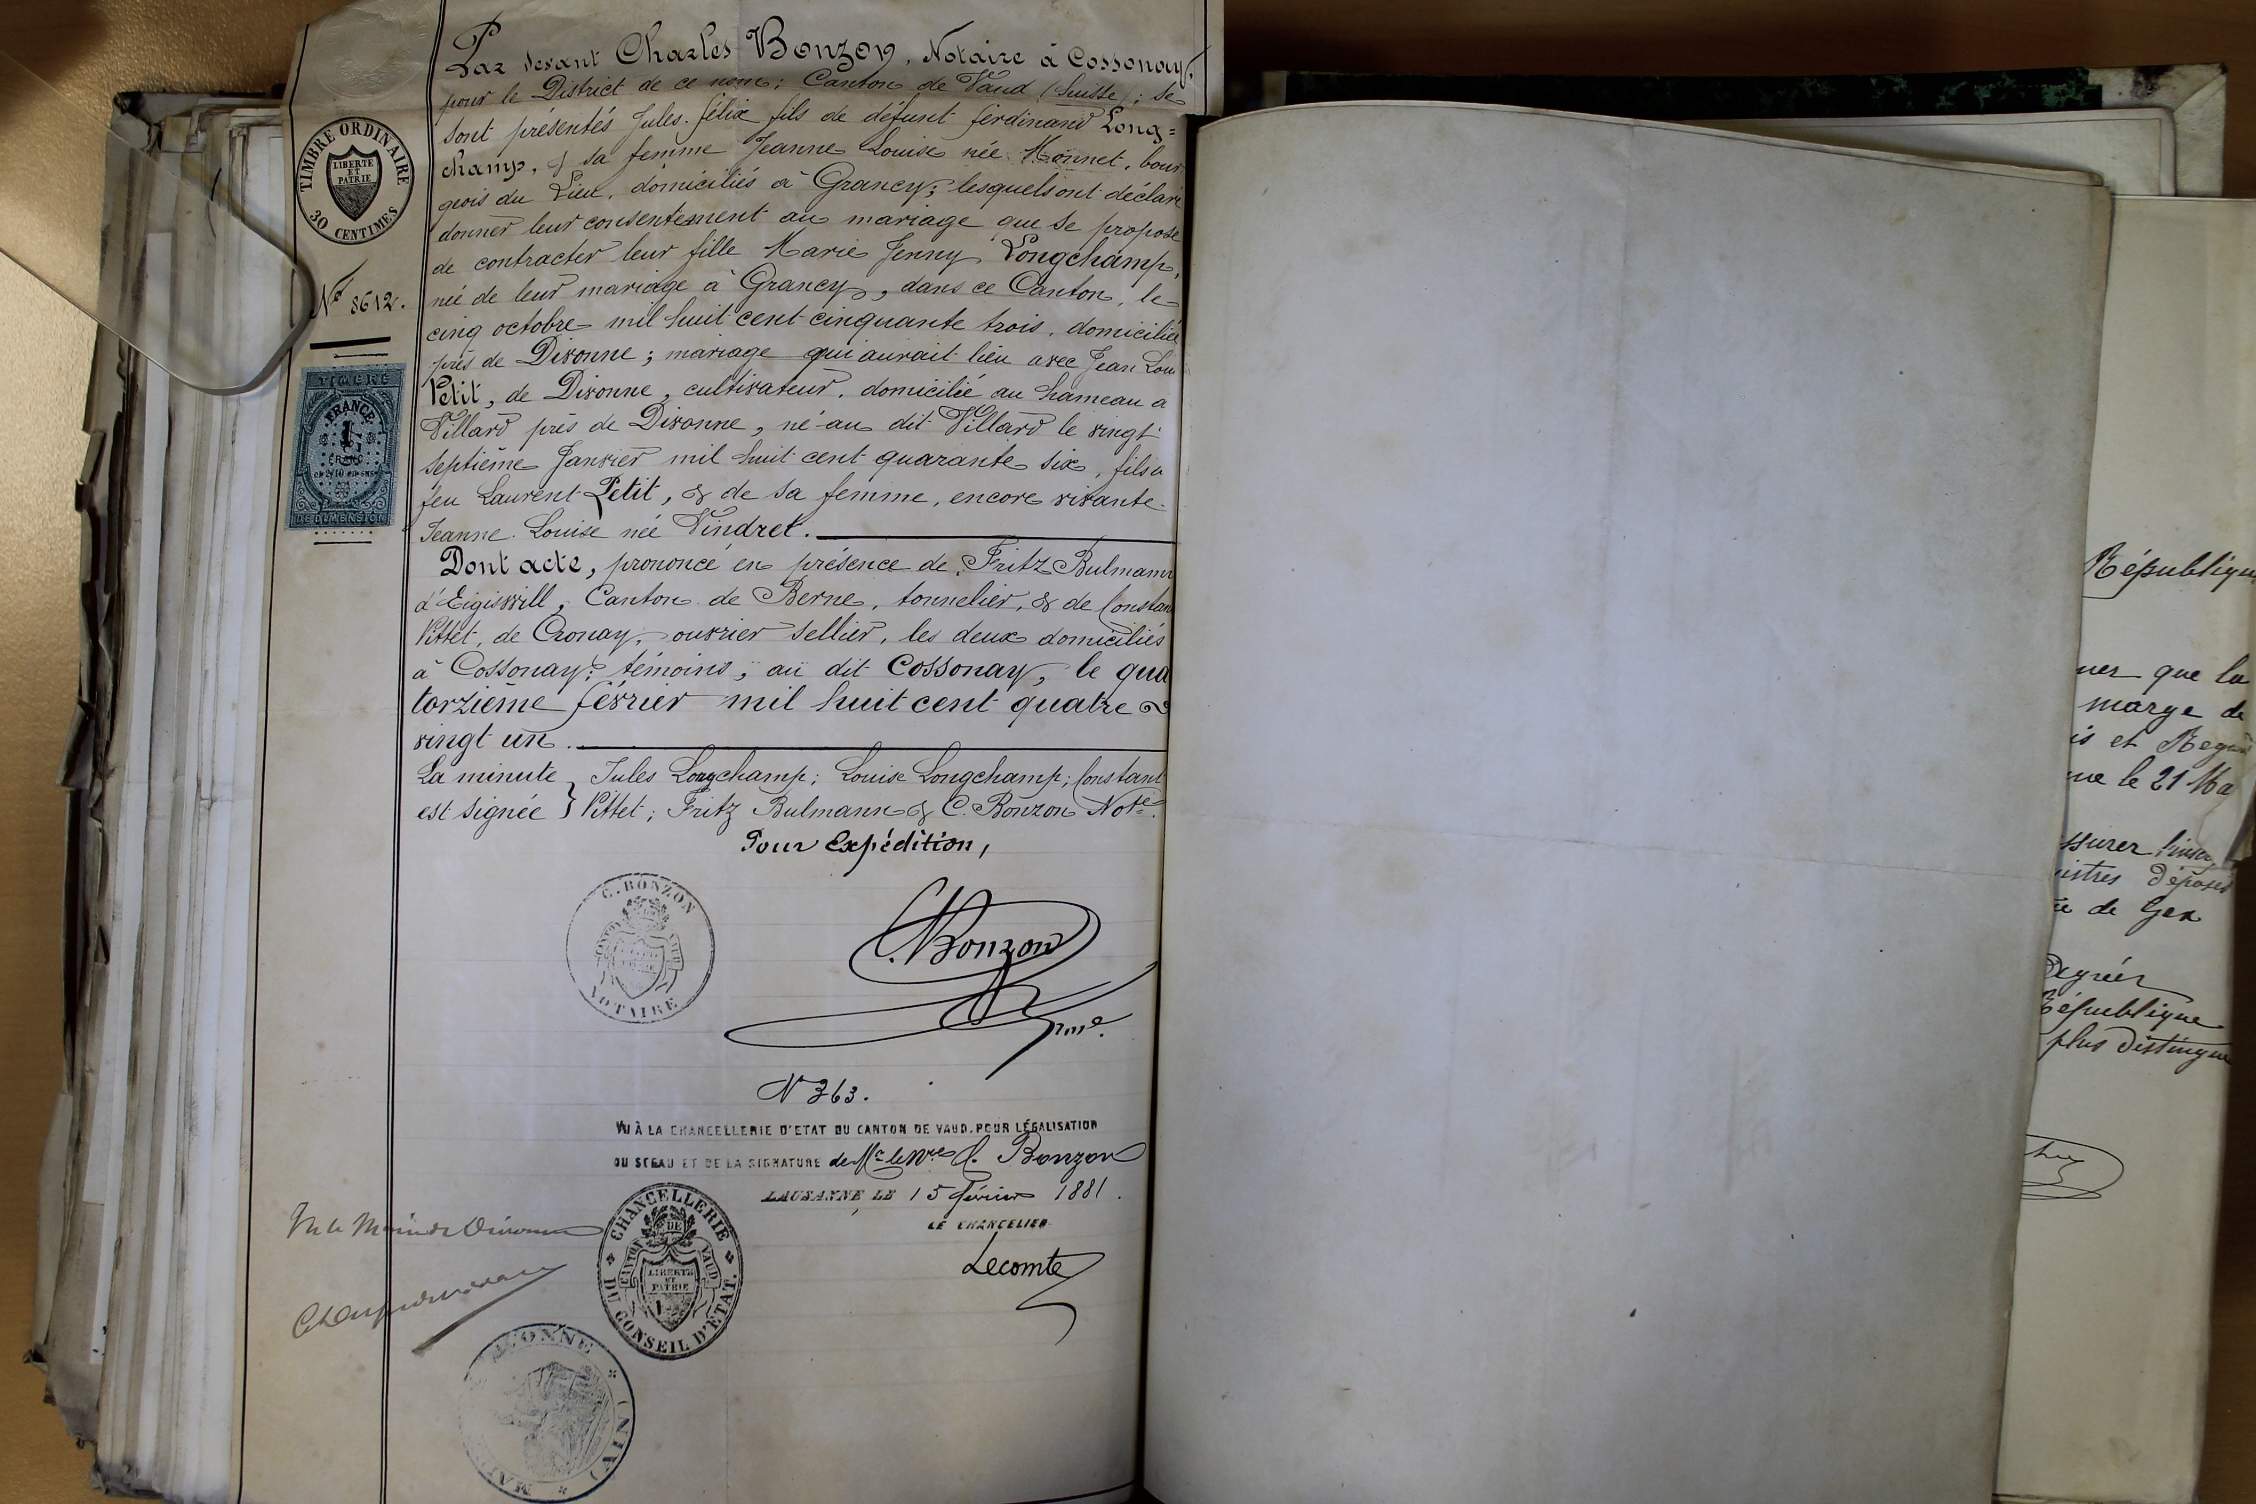 Par devant Charles Bonzon, Notaire à Cossonay,
pour le District de ce nom; Canton de Vaud (Suisse); se
sont presentés Jules-félix fils de défunt ferdinand Long=
champ, & sa femme Jeanne Louise née Monnet, bour
geois du Lieu, domiciliés à Grancy; lesquels ont déclaré
donner leur consentement au mariage que se propose
de contracter leur fille Marie Jenny Longchamp,
née de leur mariage à Grancy, dans ce Canton, le
cinq octobre mil huit cent cinquante trois, domiciliée
près de Divonne; mariage qui aurait lieu avec Jean Lou
Petit, de Divonne, cultivateur, domicilié au hameau d
Villard près de Divonne, né au dit Villard le vingt
septième Janvier mil huit cent quarante six, fils d
feu Laurent Petit, & de sa femme, encore vivante
Jeanne Louise née Vindret.
Dont acte, prononcé en présence de Fritz Bulmann
d'Eigiswill, Canton de Berne, tonnelier, & de Constan
Pittet, de Cronay, ouvrier sellier, les deux domiciliés
à Cossonay; témoins; au dit Cossonay, le qua
torzième février mil huit cent quatre
vingt un.
La minute } Jules Longchamp; Louise Longchamp; Constant
est signée } Pittet; Fritz Bulmann & C. Bonzon Note.
Pour Expédition,
C. Bonzon
N° 363.
VU À LA CHANCELLERIE D'ETAT DU CANTON DE VAUD, POUR LÉGALISATION
DU SCEAU ET DE LA SIGNATURE de Mr le Nre C. Bonzon
LAUSANNE, LE 15 février 1881.
LE CHANCELIER
Lecomte
TIMBRE ORDINAIRE
LIBERTE
ET
PATRIE
30 CENTIMES
N° 8612.
TIMBRE
FRANCE
1
FRANC
DE DIMENSION
C. BONZON
NOTAIRE
CHANCELLERIE
DU CONSEIL D'ÉTAT.
CANTON DE VAUD
LIBERTE
ET
PATRIE
(AIN)
République
ner que la
marge de
is et
ne le 21 Ma
ssurer
istres Déposés
de Gex
Agréer
République
plus Distingué